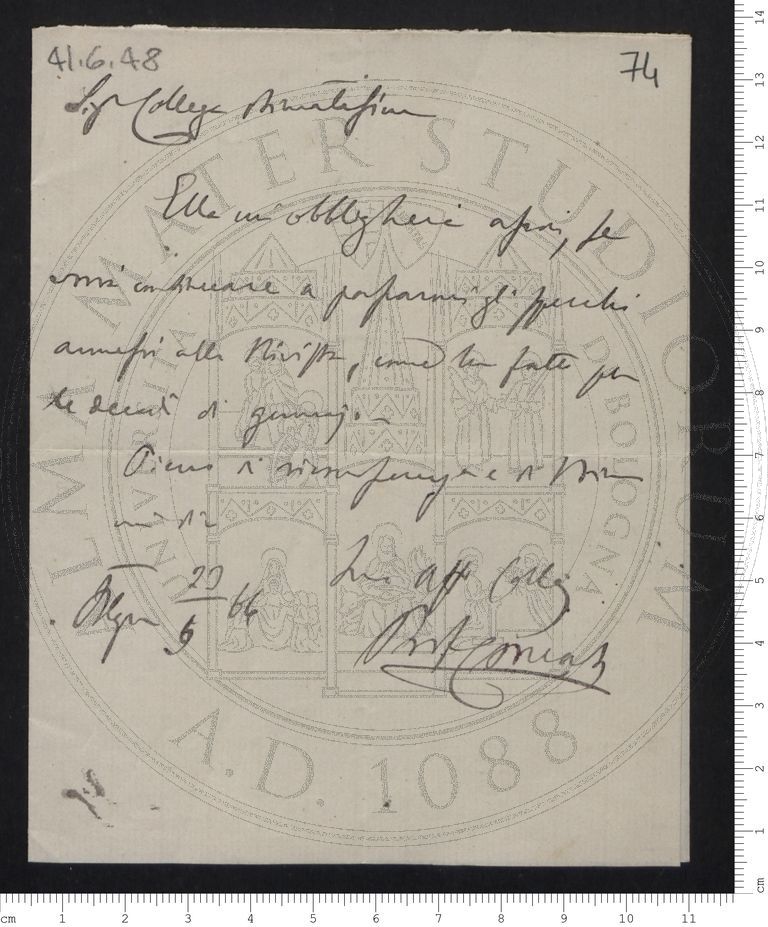 41.6.48
74
Sigr Collega Stimatissimo
Ella mi obbligherà assai, se
vorrà continuare a passarmi gli specchi
annessi alla Rivista, come ha fatto per
le decadi di gennajo.
Pieno di riconoscenza e di stima
mi dico
Suo aff Collega
Bologna 6 66
Prof
ALMA MATER STUDIORUM
A.D. 1088
BOLOGNA
cm 1 2 3 4 5 6 7 8 9 10 11
cm 1 2 3 4 5 6 7 8 9 10 11 12 13 14